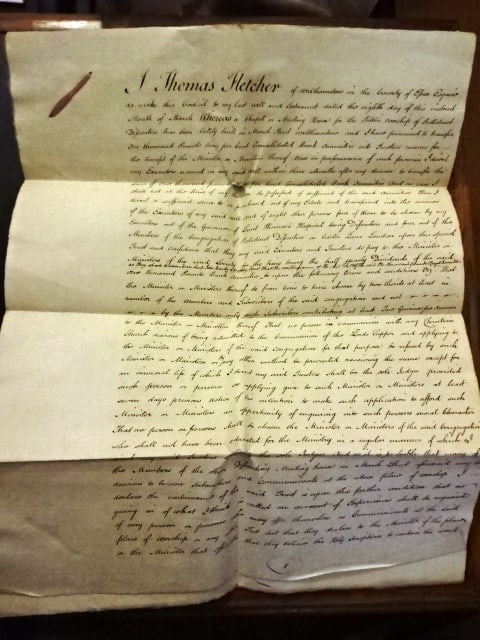 I Thomas Fletcher of Walthamstow in the County of Essex Esquire
do make this Codicil to my last will and testament dated the eighth day of this instant
Month of March Whereas a Chapel or Meeting House for the Public worship of Protestant
Dissenters has been lately built in Marsh Street Walthamstow and I have promised to transfer
One thousand Pounds Consolidated Bank Annuities into Trustees names for
the benefit of the Minister or Ministers thereof Now in performance of such promise I direct
my Executors named in my said will within three Months after my decease to transfer the
shall not at the time of my be possessed of sufficient of the said Annuities Then I
direct a sufficient sum to be purchased out of my Estate and transferred into the names
of the Executors of my said will and of eight other persons four of them to be chosen by my
Executors out of the Governors of Guest Hospital being Dissenters and four out of the
Members of the Congregation of Protestant Dissenters in London upon this special
Trust and confidence that they my said Executors and Trustees do pay to the Minister or
Ministers of the said for the time being the half yearly Dividends of the said
One thousand Pounds Bank Annuities upon the following terms and conditions That
the Minister or Ministers thereof to from time to time chosen by two thirds at least in
number of the Members and Subscribers of the said congregation and not
by the Members only such Subscribers contributing at least Two Guineas per annum
to the Minister or Ministers thereof That no person in communion with any Christian
Church desirous of being admitted to the Communion of the Lords Supper and applying to
the Minister or Ministers of the said Congregation for that purpose be refused by such
Minister or Ministers or any other method be prevented receiving the same except for
an immoral life of which I direct my said Trustees shall be the sole Judges provided
such person or persons so applying give to such Minister or Ministers at least
seven days previous notice of his intention to make such application to afford such
Minister or Ministers an opportunity of enquiring into such persons moral Character
That no person or persons shall be chosen the Minister or Ministers of the said Congregation
who shall not have been educated for the Ministry in a regular manner of which I
the Members of the Meeting house in Marsh Street
desirous to become Subscribers and Communicants at the above place of worship
declare the continuance of the said Trust is upon this further condition that no
giving in of what is called an account of Experience shall be required
of any person or persons who may offer themselves as Communicants at the said
place of worship or any Test but that they declare to the Minister of the place
or the Minister that that they believe the Holy Scriptures to contain the word